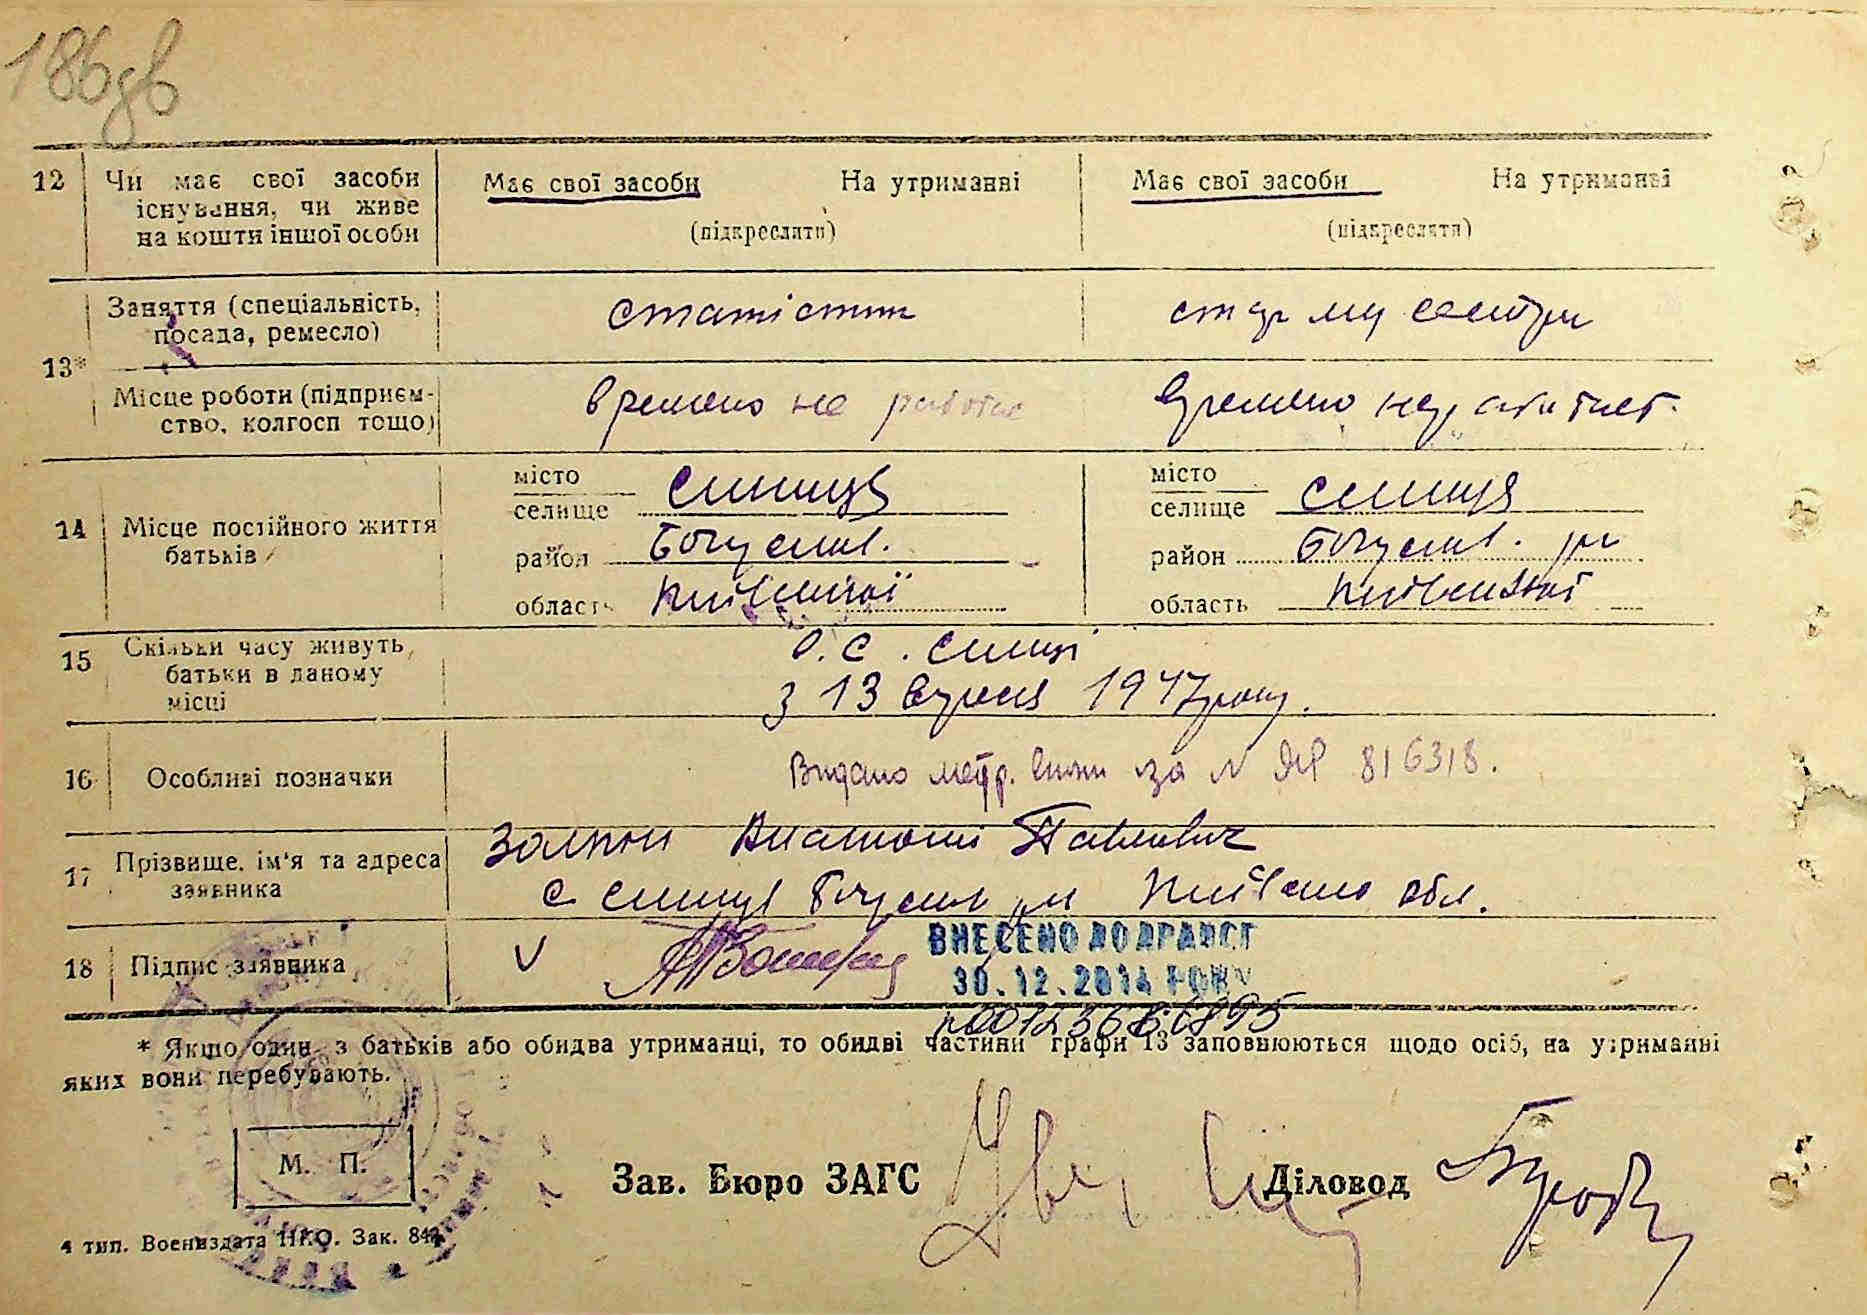 186зв
12 Чи має свої засоби існування, чи живе на кошти іншої особи
Має свої засоби На утриманні
(підкреслити)
Має свої засоби На утриманні
(підкреслити)
13* Заняття (спеціальність, посада, ремесло)
статістик
ст. мед сестра
Місце роботи (підприємство, колгосп тощо)
времено не работає
времено не работает.
14 Місце постійного життя батьків
місто
селище Синиця
район Богуслав.
область Київської
місто
селище Синиця
район Богуслав. р-н
область Київської
15 Скільки часу живуть батьки в даному місці
в с. Синиці
з 13 вересня 1947 року.
16 Особливі позначки
Видано метр. за № 816318.
17 Прізвище, ім'я та адреса заявника
Анатолій Павлович
с Синиця Богуслав р-н Київської обл.
18 Підпис заявника
V
ВНЕСЕНО ДО ДРАЦСГ
30.12.2014 РОКУ
* Якщо один з батьків або обидва утриманці, то обидві частини графи 13 заповнюються щодо осіб, на утриманні
яких вони перебувають.
М. П.
Зав. Бюро ЗАГС
Діловод
4 тип. Воениздата НКО. Зак. 844